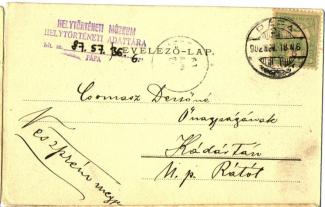 HELYTÖRTÉNETI MÚZEUM
HELYTÖRTÉNETI ADATTÁRA
PÁPA
LEVELEZŐ-LAP.
PÁPA
Csomasz Dezsőné
Őnagyságának
Kádártán
U. p. Rátót
Veszprém megye